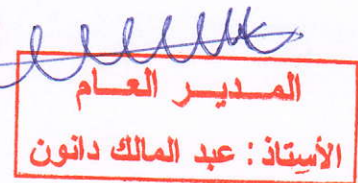 المـديـر العـام
الأستاذ : عبد المالك دانون